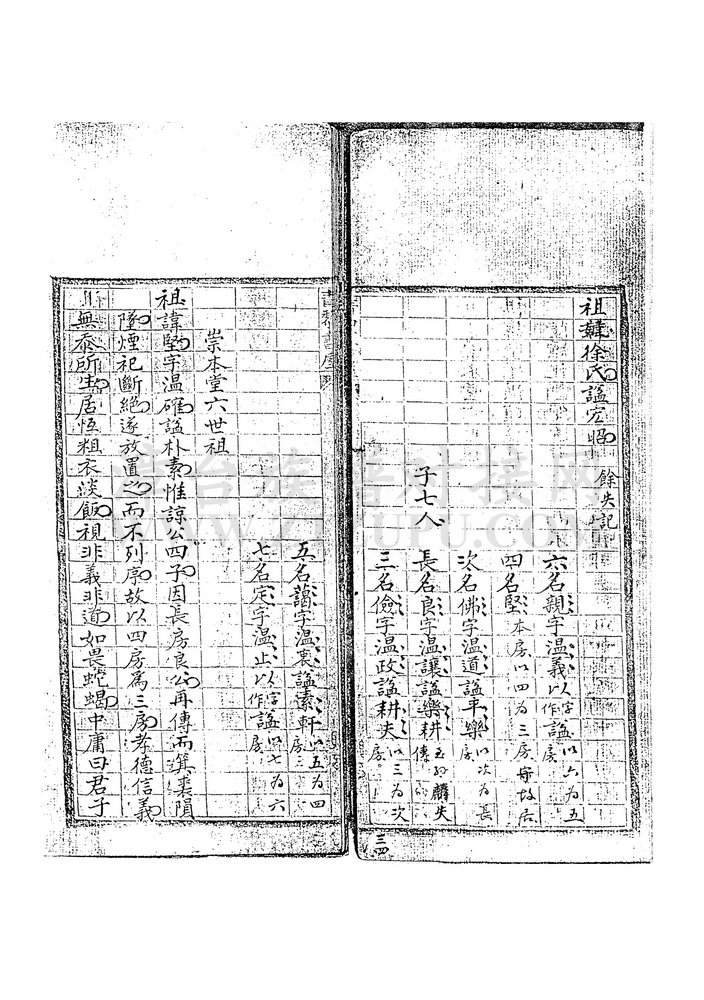 祖妣徐氏諡宏昭 餘失記
子七人
六名親字溫義以字作諡以六為五房
四名堅本房以四為三房
次名佛字溫道諡平樂以次為長房
長名良字溫讓諡樂耕
三名儉字溫政諡耕夫以三為次房
三四
五名藹字溫裏諡素軒以五為四房
七名定字溫止以字作諡以七為六房
崇本堂六世祖
祖諱堅字溫確諡朴素惟諒公四子因長房良公再傳而箕裘隕
墜煙祀斷絕遂放置之而不列序故以四房為三房孝德信義
無忝所生居恆粗衣淡飯視非義非道如畏蛇蝎中庸曰君子